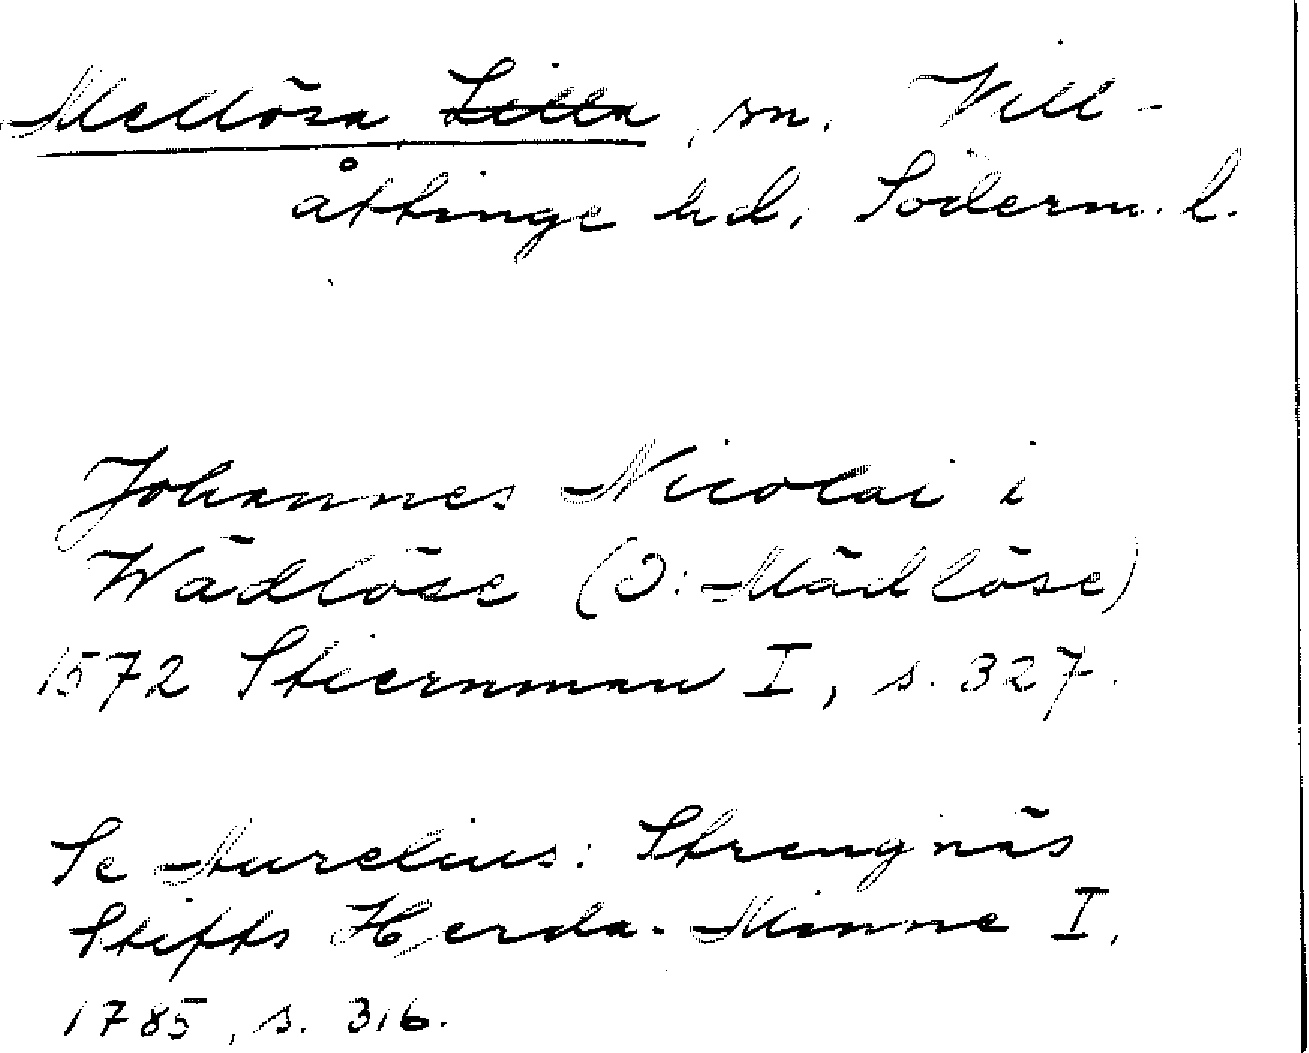 Mellösa Lilla, sn. Vill-
åttinge hd. Söderm. l.
Johannes Nicolai i
Wädlöse (ɔ: Mädlöse)
1572 Stiernman I, s. 327.
Se Aurelius: Strengnäs
Stifts Herda-Minne I,
1785, s. 316.